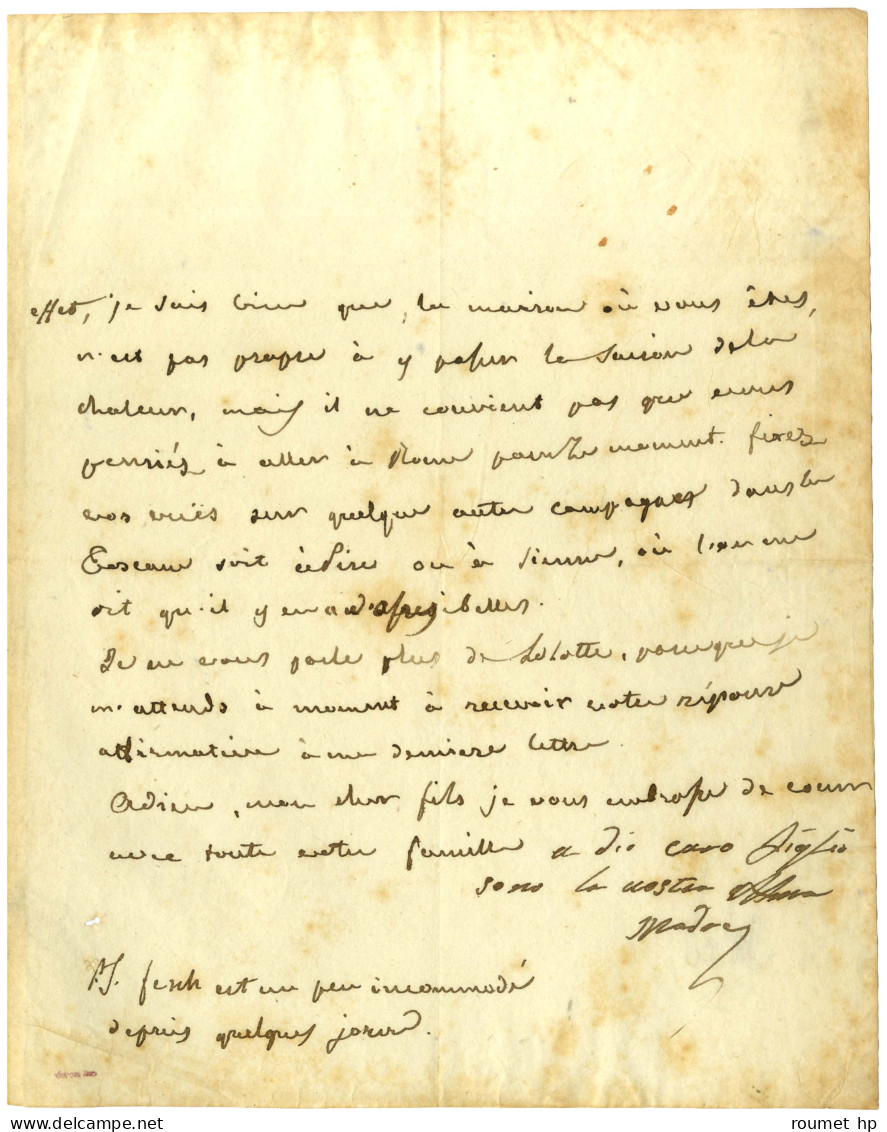 effet, je sais bien que, la maison où vous êtes,
n'est pas propre à y passer la saison dela
chaleur, mais il ne convient pas que vous
pensiés à aller à Rome pour le moment. fixez
vos vuës sur quelque autre campagnes dans la
Toscane soit à Pise ou à Sienne, où l'on me
dit qu'il y en a d'assez belles.
Je ne vous parle plus de Lolotte, parceque je
m'attends à moment à recevoir votre réponse
affirmative à ma derniere lettre.
Adieu, mon cher fils je vous embrasse de coeur
avec toute votre famille a dio caro figlio
sono la vostra
Madre
P.S. fesch est un peu incommodé
depuis quelques jours.
roumet hp